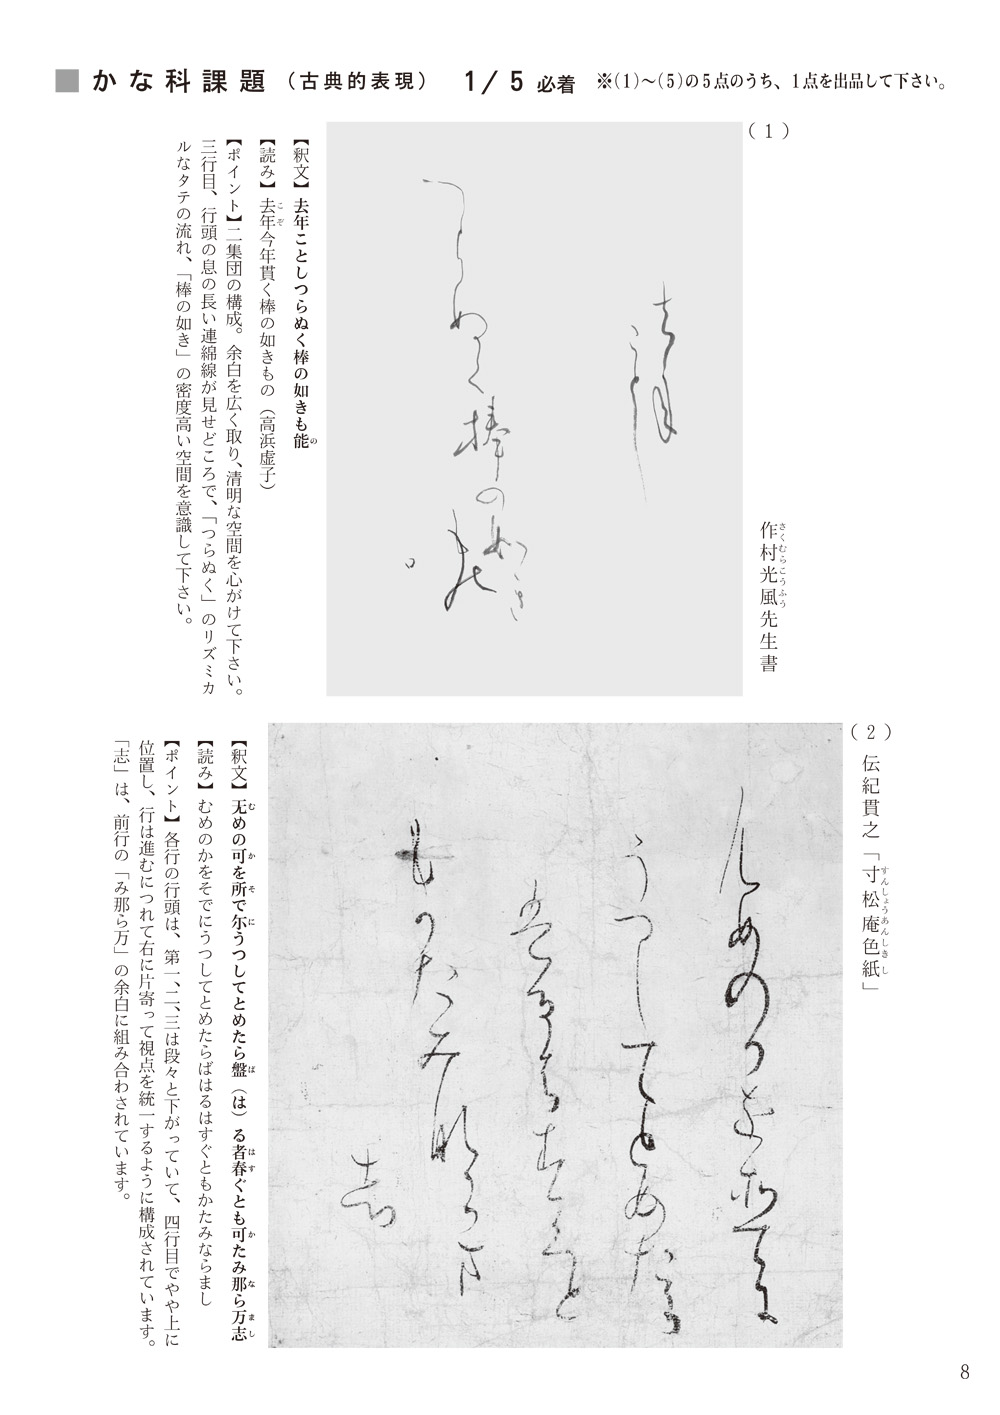 ■ かな科課題（古典的表現） 1/5 必着 ※(1)～(5)の5点のうち、1点を出品して下さい。
(1)
作村光風先生書
さくむらこうふう
去年
ことし
つらぬく
棒の如き
も能
【釈文】去年ことしつらぬく棒の如きも能
の
【読み】去年今年貫く棒の如きもの（高浜虚子）
こぞ
【ポイント】二集団の構成。余白を広く取り、清明な空間を心がけて下さい。
三行目、行頭の息の長い連綿線が見せどころで、「つらぬく」のリズミカ
ルなタテの流れ、「棒の如き」の密度高い空間を意識して下さい。
(2)
伝紀貫之「寸松庵色紙」
すんしょうあんしきし
无めの可を所て尓
うつしてとめたら
盤る者春ぐと
も可たみ那ら万
志
【釈文】无めの可を所で尓うつしてとめたら盤（は）る者春ぐとも可たみ那ら万志
む か そ に ば は す か な ま し
【読み】むめのかをそでにうつしてとめたらばはるはすぐともかたみならまし
【ポイント】各行の行頭は、第一、二、三は段々と下がっていて、四行目でやや上に
位置し、行は進むにつれて右に片寄って視点を統一するように構成されています。
「志」は、前行の「み那ら万」の余白に組み合わされています。
8